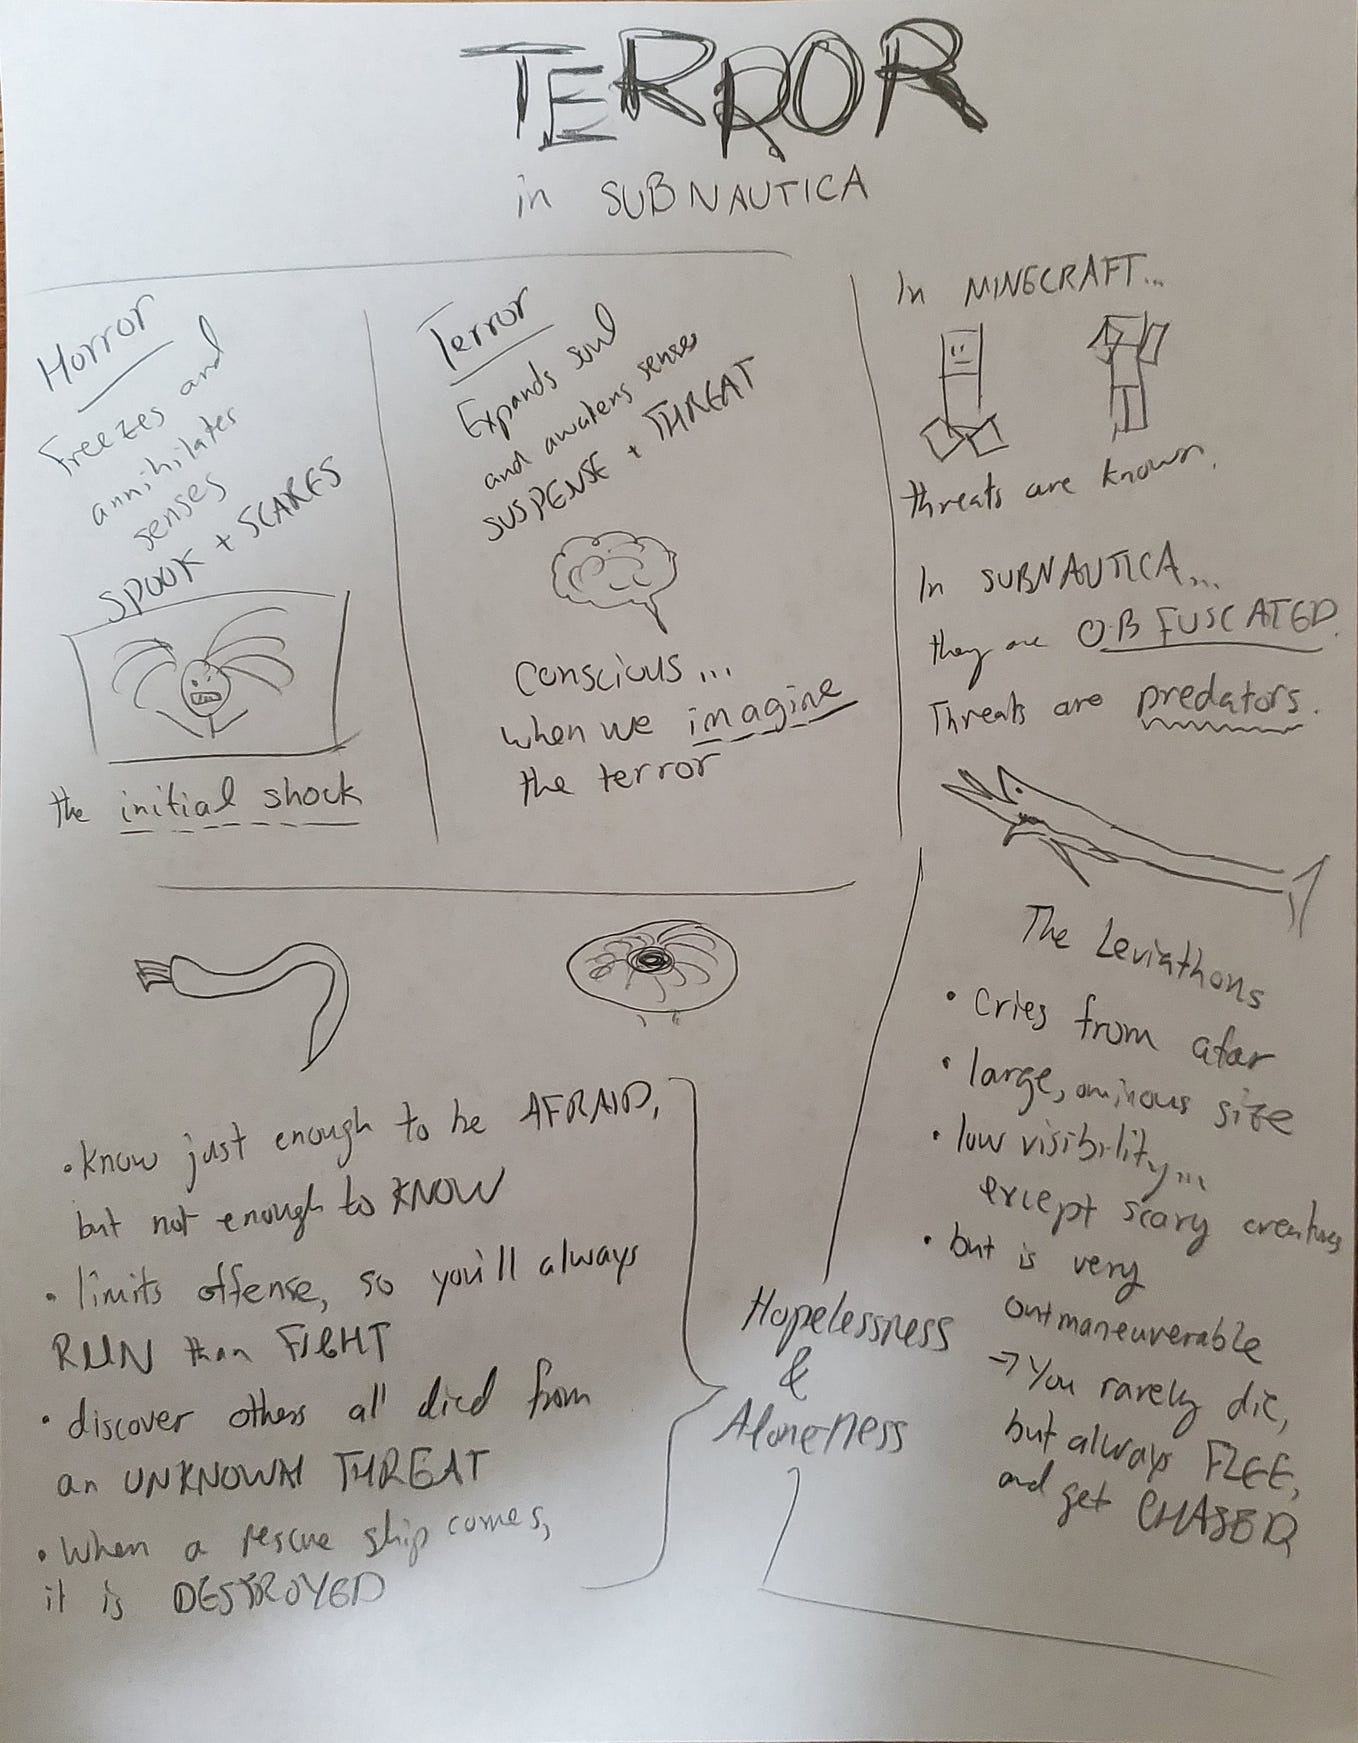 TERROR
in SUBNAUTICA
Horror
Freezes and
annihilates
senses
SPOOK + SCARES
the initial shock
Terror
Expands soul
and awakens senses
SUSPENSE + THREAT
Conscious...
when we imagine
the terror
In MINECRAFT...
threats are known.
In SUBNAUTICA...
they are OBFUSCATED.
Threats are predators.
The Leviathons
• Cries from afar
• large, ominous size
• low visibility...
except scary creatures
• but is very
outmaneuverable
→ You rarely die,
but always FLEE,
and get CHASED
• know just enough to be AFRAID,
but not enough to KNOW
• limits offense, so you'll always
RUN than FIGHT
• discover others all died from
an UNKNOWN THREAT
• When a rescue ship comes,
it is DESTROYED
Hopelessness
&
Aloneness